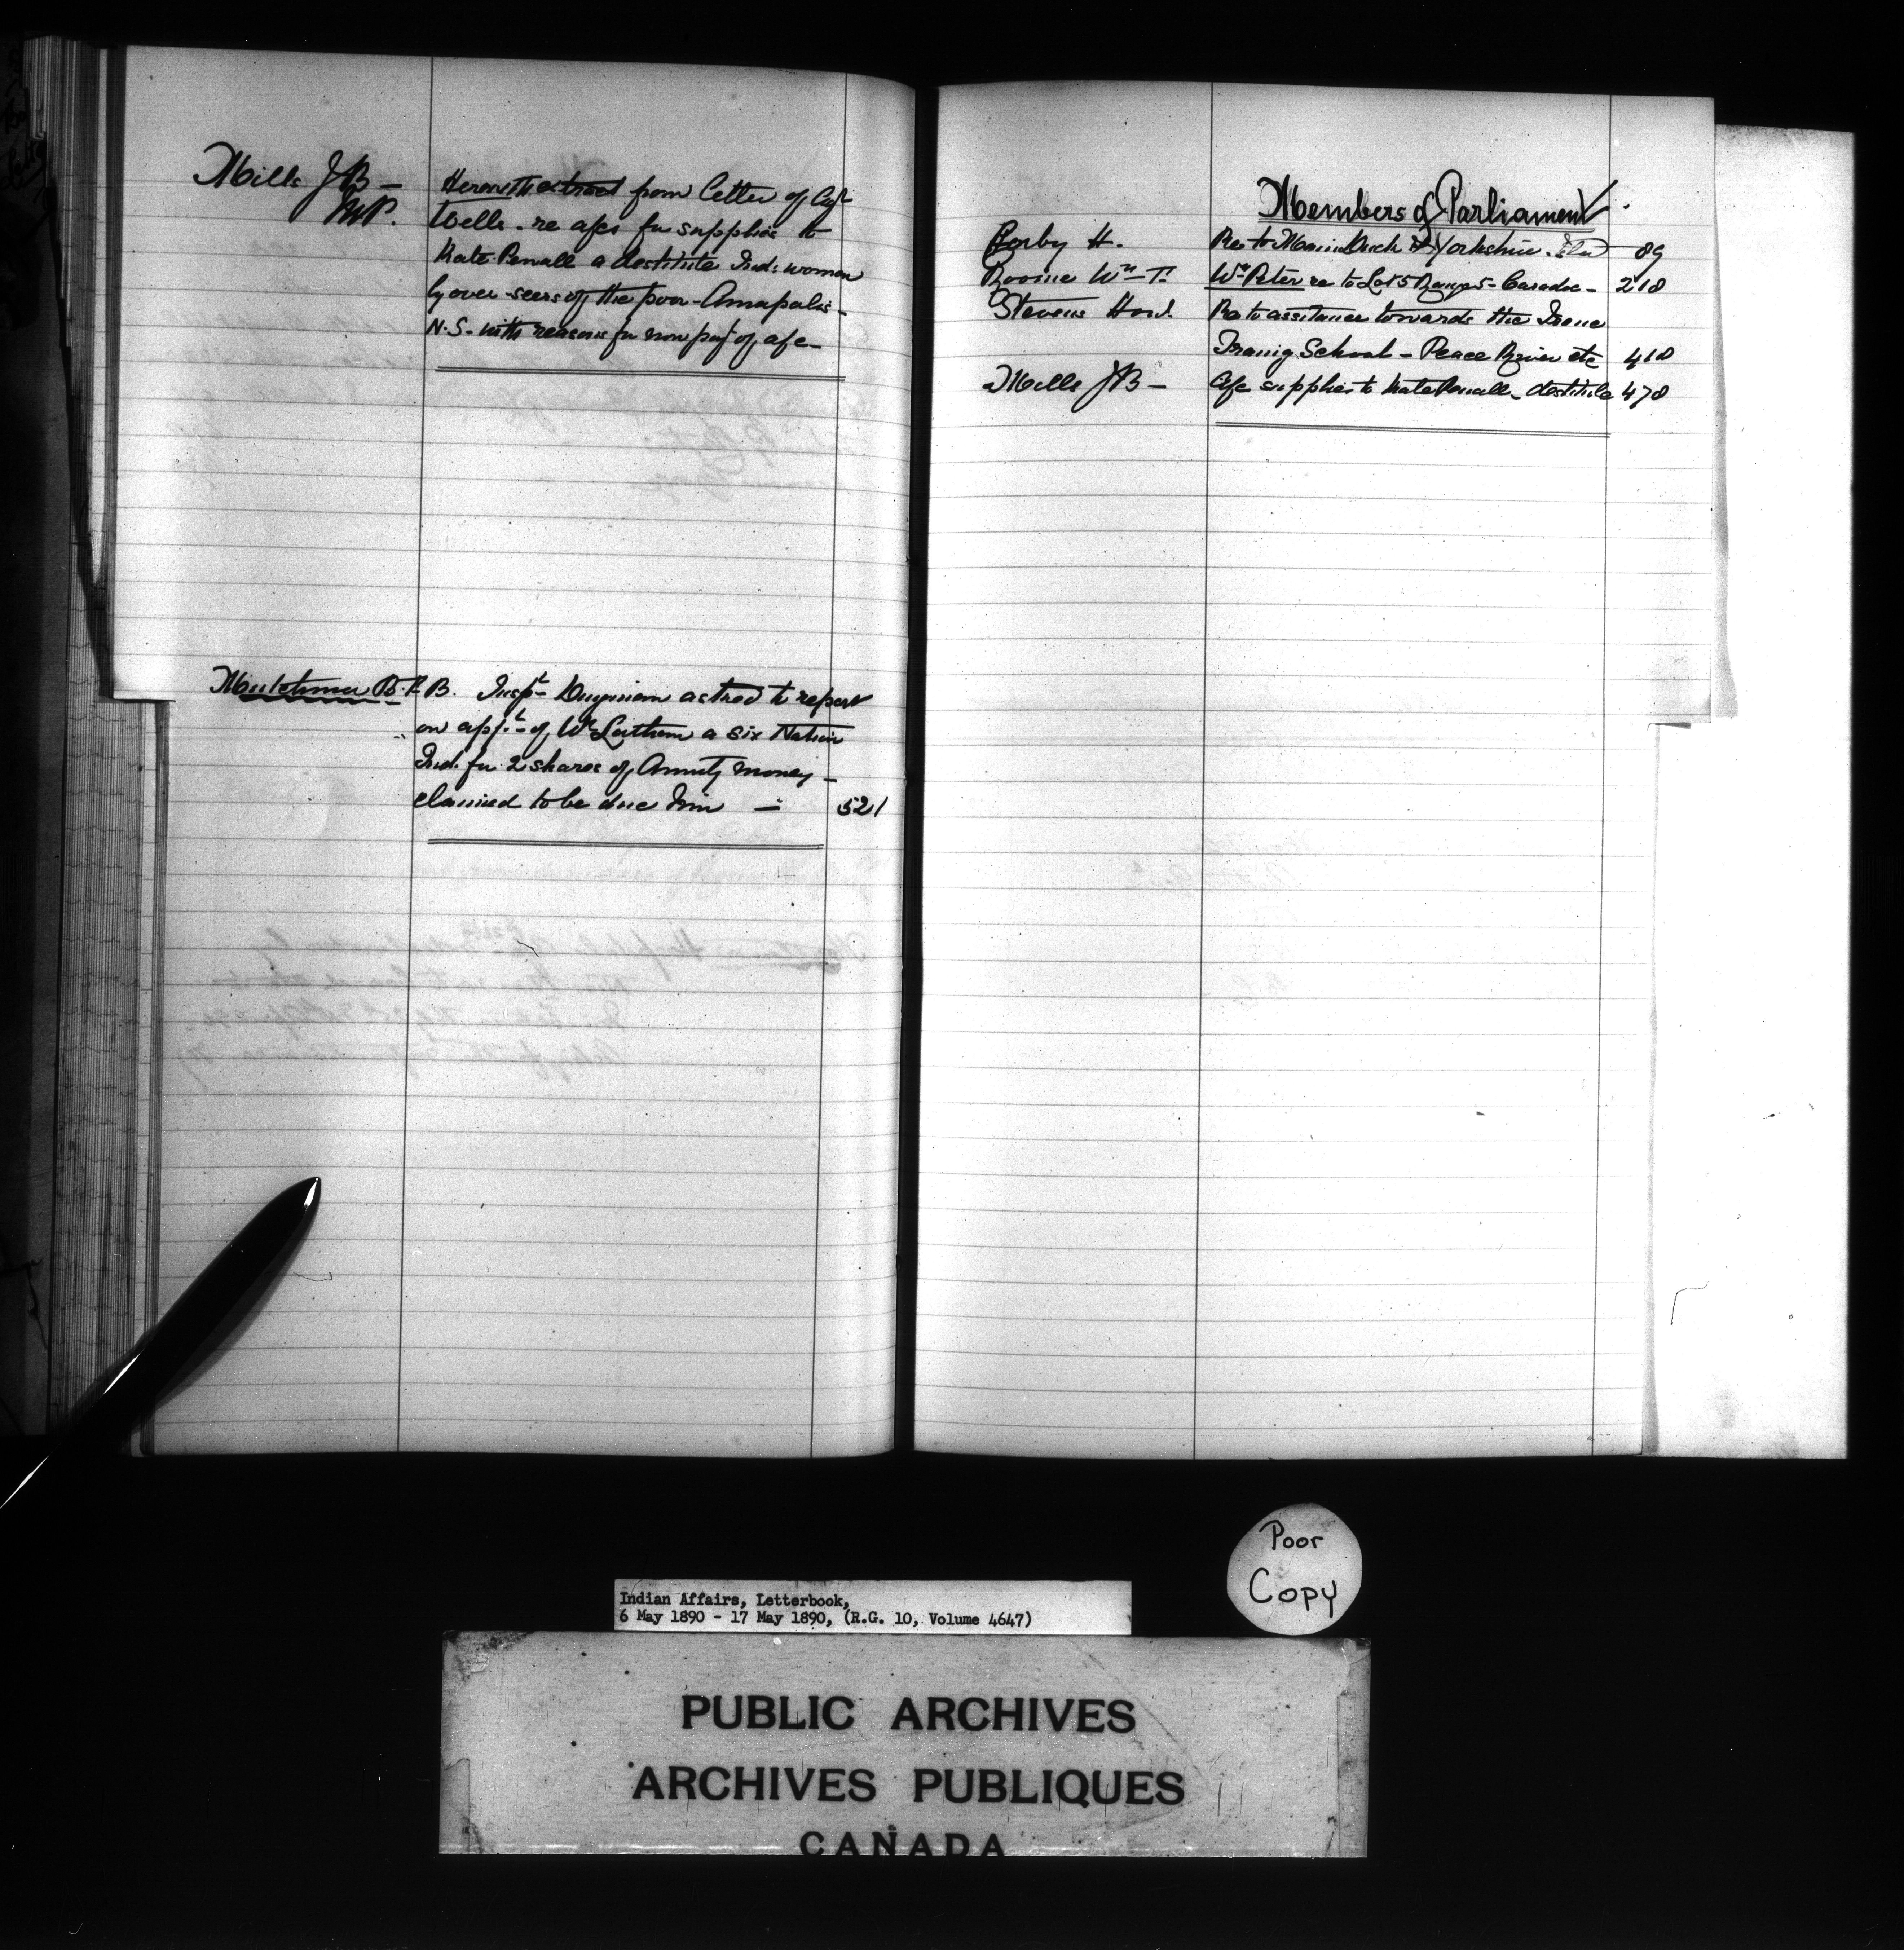 Mills J B –
M.P.
Herewith extract from letter of Agt
Wells – re a/cs for supplies to
Kate Penall a destitute Ind: woman
by over-seers of the poor – Annapolis –
N.S. – with reasons for non pay't of a/c –
B. Insp't Dingman asked to report
on app't of Wm Latham a Six Nation
Ind. for 2 shares of Annuity money –
claimed to be due him – 521
Members of Parliament
Corby H. Re to Yorkshire 89
Roome Wm T. Wm Peter re to Lot 5 Range 5 – Caradoc – 218
Stevens Hon. Re to assistance towards the Irene
Traing School – Peace River etc 418
Mills J B – A/c supplies to Kate Penall – destitute 478
Poor
Copy
Indian Affairs, Letterbook,
6 May 1890 - 17 May 1890, (R.G. 10, Volume 4647)
PUBLIC ARCHIVES
ARCHIVES PUBLIQUES
CANADA